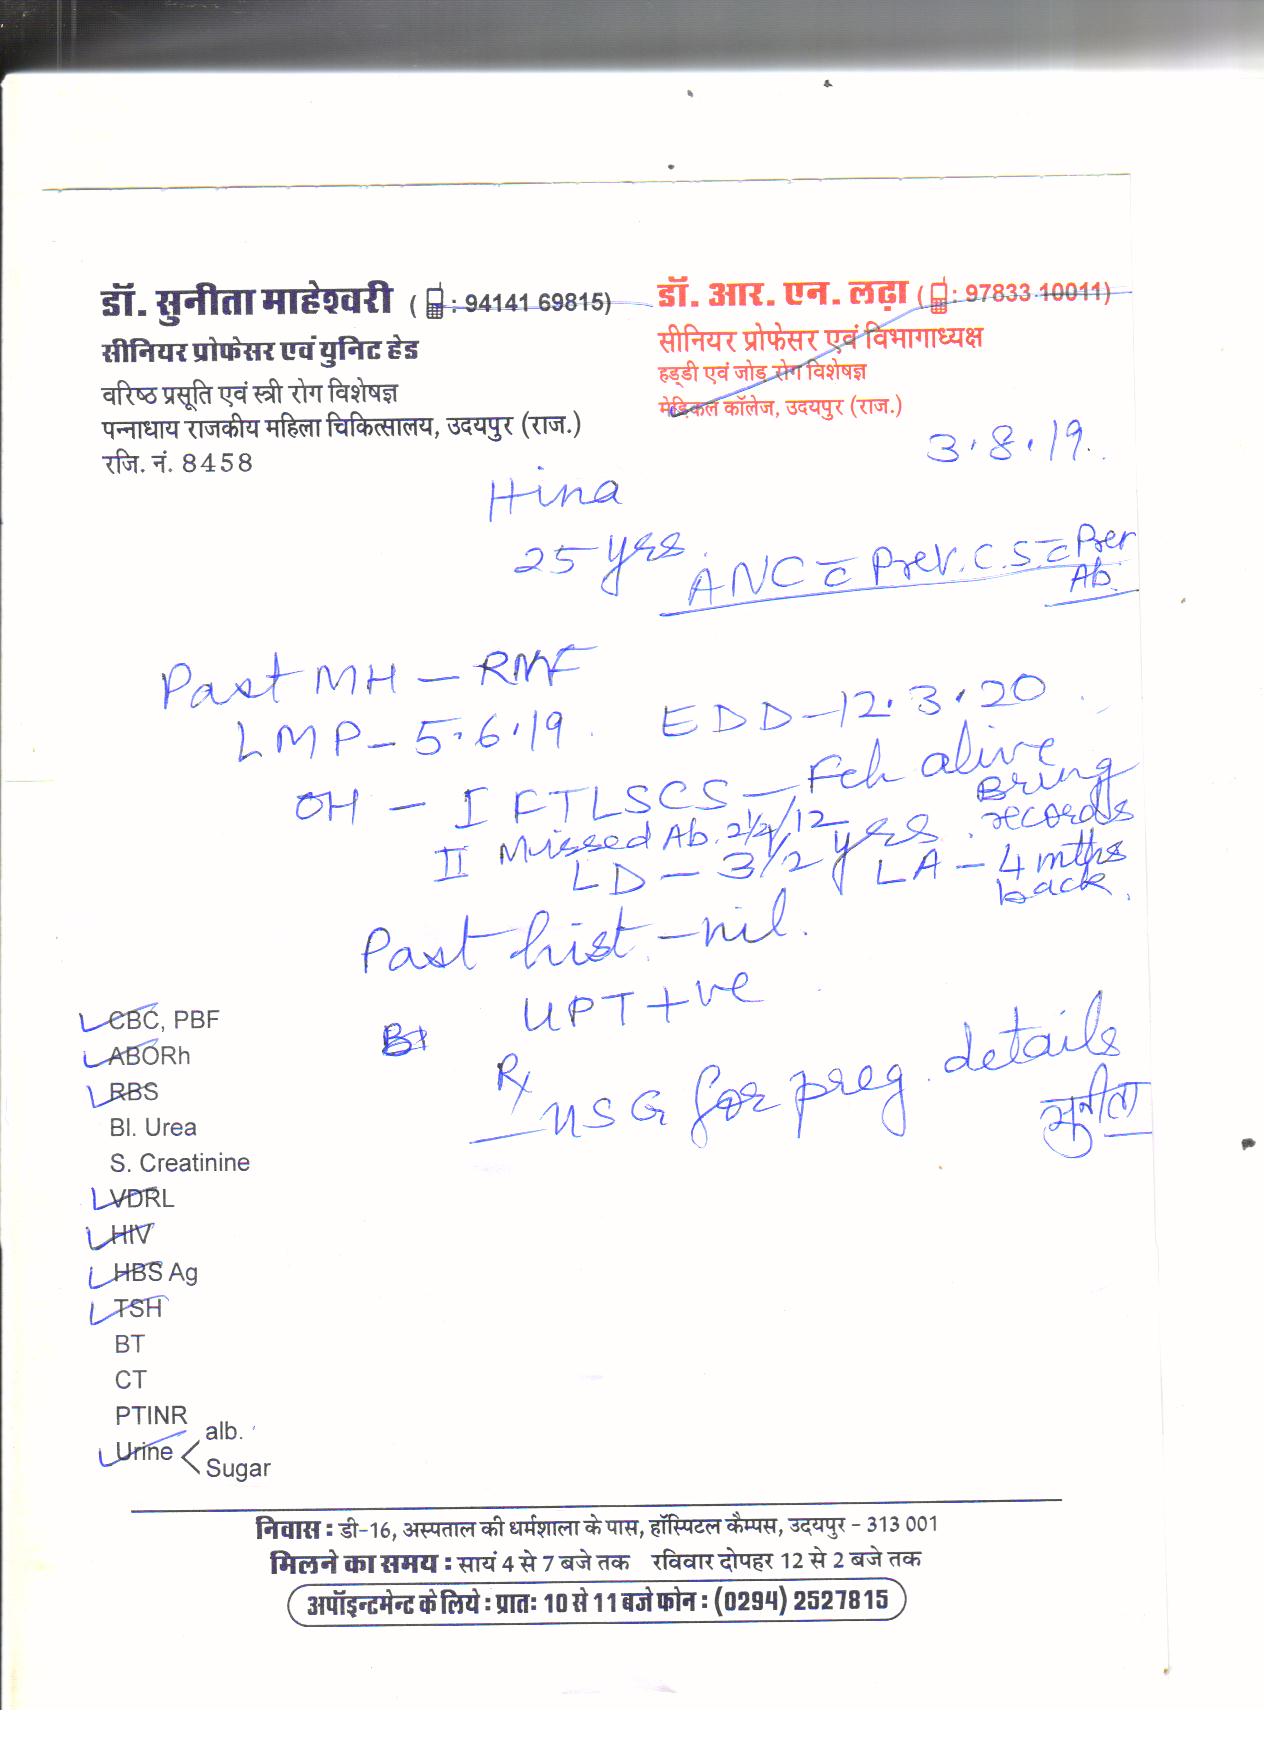 डॉ. सुनीता माहेश्वरी ( : 94141 69815)
सीनियर प्रोफेसर एवं युनिट हेड
वरिष्ठ प्रसूति एवं स्त्री रोग विशेषज्ञ
पन्नाधाय राजकीय महिला चिकित्सालय, उदयपुर (राज.)
रजि. नं. 8458
डॉ. आर. एन. लढ़ा ( : 97833 10011)
सीनियर प्रोफेसर एवं विभागाध्यक्ष
हड्डी एवं जोड़ रोग विशेषज्ञ
मेडिकल कॉलेज, उदयपुर (राज.)
3.8.19.
Hina
25 yrs.
ANC c̄ Prev. C.S. c̄ Prev
Ab.
Past MH – RMF
LMP – 5.6.19. EDD – 12.3.20
OH – I FTLSCS – Fch alive
II Missed Ab. 2½/12 Bring records
LD – 3½ yrs. LA – 4 mths back.
Past hist. – nil.
UPT +ve
Rx
USG for preg. details
सुनीता
CBC, PBF
ABORh
RBS
Bl. Urea
S. Creatinine
VDRL
HIV
HBS Ag
TSH
BT
CT
PTINR
Urine < alb.
Sugar
निवास : डी-16, अस्पताल की धर्मशाला के पास, हॉस्पिटल कैम्पस, उदयपुर - 313 001
मिलने का समय : सायं 4 से 7 बजे तक रविवार दोपहर 12 से 2 बजे तक
अपॉइन्टमेन्ट के लिये : प्रातः 10 से 11 बजे फोन : (0294) 2527815